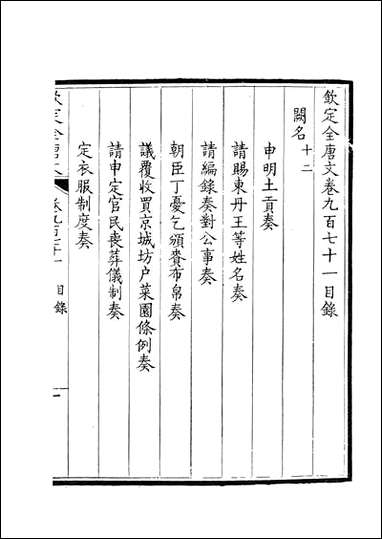 欽定全唐文卷九百七十一目錄
闕名十二
申明土貢奏
請賜東丹王等姓名奏
請編錄奏對公事奏
朝臣丁憂乞頒賚布帛奏
議覆收買京城坊戶菜園條例奏
請申定官民喪葬儀制奏
定衣服制度奏
欽定全唐文 卷九百七十一 目錄 一